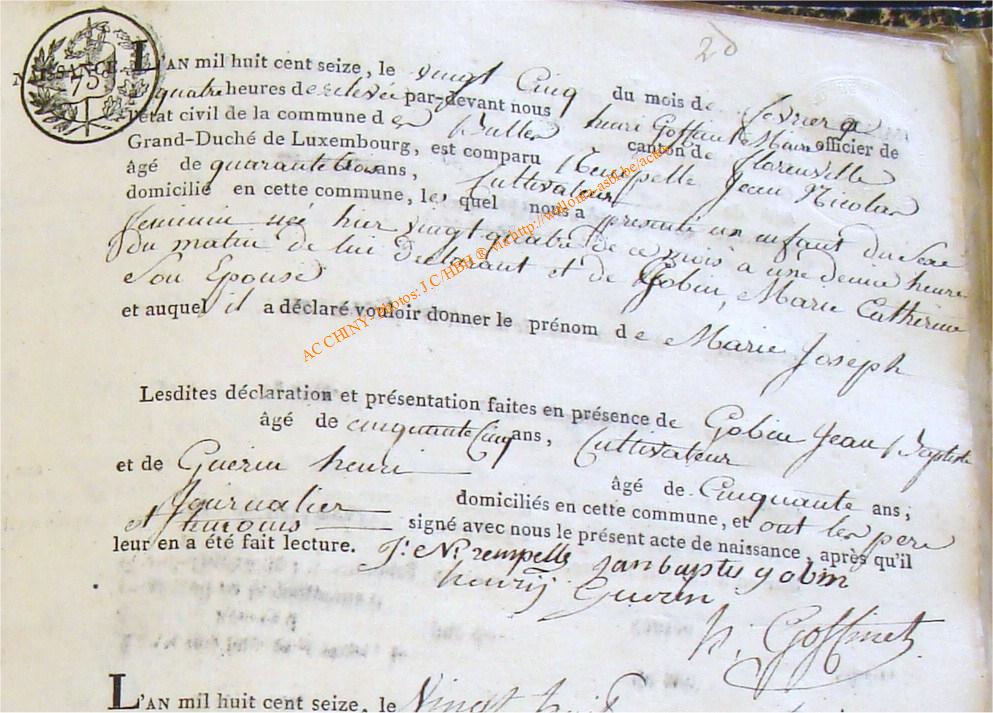 20
NAISSANCE.
75
L'AN mil huit cent seize, le vingt Cinq du mois de fevrier a
quatre heures de relevée par-devant nous henri Goffinet Maire officier de
l'état civil de la commune de canton de florenville
Grand-Duché de Luxembourg, est comparu Rempelle Jean Nicolas
âgé de quarante trois ans, Cultivateur
domicilié en cette commune, les quel nous a presenté un enfant du sexe
feminin née hier vingt quatre de ce mois a une demie heure
du matin de lui Declarant et de Gobin, Marie Catherine
Son Epouse
et auquel il a déclaré vouloir donner le prénom de Marie Joseph
Lesdites déclaration et présentation faites en présence de Gobin Jean Baptiste
âgé de cinquante Cinq ans, Cultivateur
et de Guerin henri âgé de Cinquante ans;
Journalier domiciliés en cette commune, et ont les pere
et temoins signé avec nous le présent acte de naissance, après qu'il
leur en a été fait lecture. J: N: rempelle janbaptis gobin
henrij Gueren
h. Goffinet
L'AN mil huit cent seize, le Vingt huit
AC CHINY - photos: J.C/HBH ® via http://wallonia-asbl.be/actes